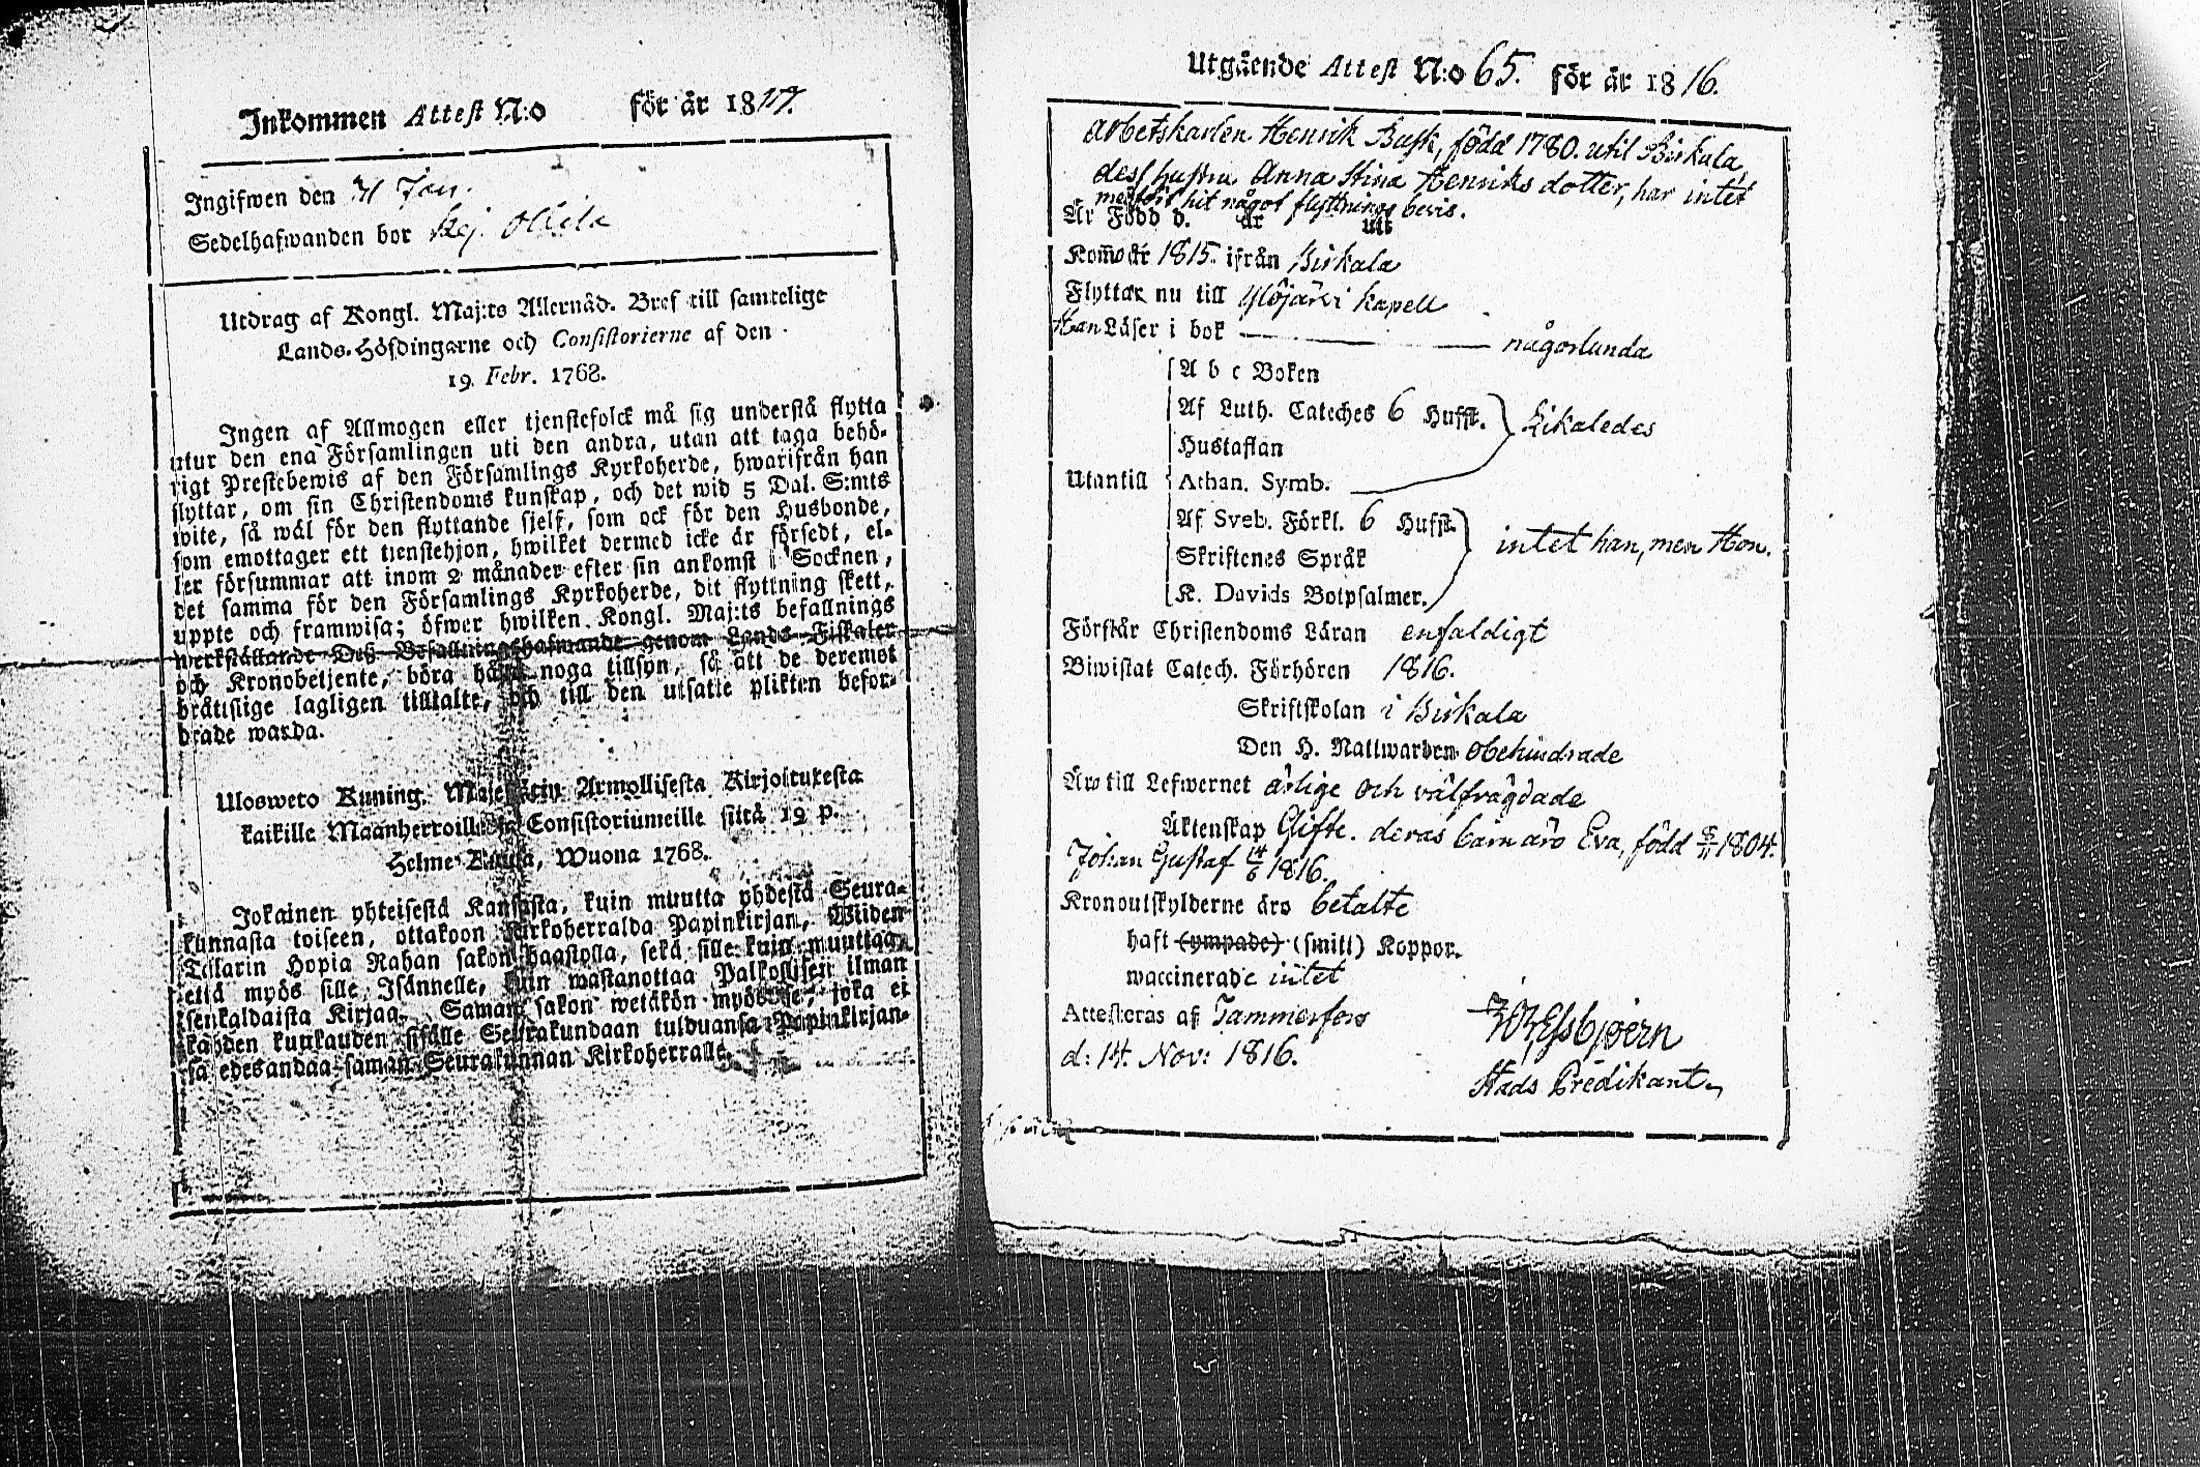 Inkommen Attest N:o för år 1817.
Ingifwen den 31 Jan.
Sedelhafwanden bor
Utdrag af Kongl. Maj:ts Allernåd. Bref till samtelige
Lands-Höfdingarne och Consistorierne af den
19. Febr. 1768.
Ingen af Allmogen eller tjenstefolck må sig understå flytta
utur den ena Församlingen uti den andra, utan att taga behö-
rigt Prestebewis af den Församlings Kyrkoherde, hwarifrån han
flyttar, om sin Christendoms kunskap, och det wid 5 Dal. S:mts
wite, så wäl för den flyttande sjelf, som ock för den Husbonde,
som emottager ett tjenstehjon, hwilket dermed icke är försedt, el-
ler försummar att inom 2 månader efter sin ankomst i Socknen,
det samma för den Församlings Kyrkoherde, dit flyttning skett,
uppte och framwisa; öfwer hwilken Kongl. Maj:ts befallnings
werkställande Deß Befallningshafwande genom Lands-Fiskaler
och Kronobetjente, böra hafwa noga tillsyn, så att de deremot
bråttslige lagligen tilltalte, och till den utsatte plikten befor-
drade warda.
Ulosweto Kuning. Majestätin Armollisesta Kirjoituxesta
kaikille Maanherroille ja Consistoriumeille siitä 19 p.
Helme Kuusa, Wuona 1768.
Jokainen yhteisestä Kansasta, kuin muutta yhdestä Seura-
kunnasta toiseen, ottakoon Kirkoherralda Papinkirjan, Wiiden
Tallarin Hopia Rahan sakon haastolla, sekä sille kuin muuttaa,
että myös sille Isännelle, kuin wastanottaa Palkollisen ilman
senkaldaista Kirjaa. Saman sakon wetäkön myös se, joka ei
kahden kuukauden sisälle Seurakundaan tulduansa Papinkirjan-
sa edesandaa saman Seurakunnan Kirkoherralle.
Utgående Attest N:o 65. för år 1816.
Arbetskarlen Henrik Busk, född 1780. uti Birkala,
dess hustru Anna Stina Henriksdotter, har intet
medfört hit något flyttnings bevis.
Är Född d. år uti
Kom̃o år 1815. ifrån Birkala
Flyttar nu till Ylöjärvi kapell
Han Läser i bok någorlunda
A b c Boken
Af Luth. Cateches 6 Hufst. Likaledes
Hustaflan
Utantill Athan. Symb.
Af Sveb. Förkl. 6 Hufst.
Skriftenes Språk intet han, men Hon.
K. Davids Botpsalmer.
Förstår Christendoms Läran enfaldigt
Biwistat Catech. Förhören 1816.
Skriftskolan i Birkala
Den H. Nattwarden obehindrade
Äro till Lefwernet ärlige och välfrägdade
Äktenskap Gifte. deras barn äro Eva, född 8/11 1804.
Johan Gustaf 14/6 1816.
Kronoutskylderne äro betalte
haft (ympade) (smitt) Koppor.
waccinerade intet
Attesteras af Tammerfors
d: 14. Nov: 1816.
Essbjoern
Stads Predikant